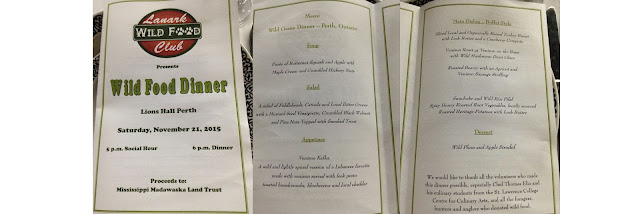 Lanark
WILD FOOD
Club
Presents
Wild Food Dinner
Lions Hall Perth
Saturday, November 21, 2015
5 p.m. Social Hour 6 p.m. Dinner
Proceeds to:
Mississippi Madawaska Land Trust
Menu
Wild Game Dinner – Perth, Ontario
Soup
Puree of Butternut Squash and Apple with
Maple Cream and Candied Hickory Nuts
Salad
A salad of Fiddleheads, Cattails and Local Bitter Greens
with a Mustard Seed Vinaigrette, Crumbled Black Walnut
and Pine Nuts Topped with Smoked Trout
Appetizer
Venison Kafka
A mild and lightly spiced version of a Lebanese favorite
made with venison served with leek pesto
toasted breadcrumbs, blueberries and local cheddar
Main Dishes – Buffet Style
Sliced Local and Organically Raised Turkey Breast
with Leek Butter and a Cranberry Compote
Venison Roast of Venison on the Bone
with Wild Mushroom Stout Glaze
Roasted Beaver with an Apricot and
Venison Sausage Stuffing
Sunchoke and Wild Rice Pilaf
Spicy Honey Roasted Root Vegetables, locally sourced
Roasted Heritage Potatoes with Leek Butter
Dessert
Wild Plum and Apple Streudel
We would like to thank all the volunteers who made
this dinner possible, especially Chef Thomas Elia and
his culinary students from the St. Lawrence College
Centre for Culinary Arts, and all the foragers,
hunters and anglers who donated wild food.